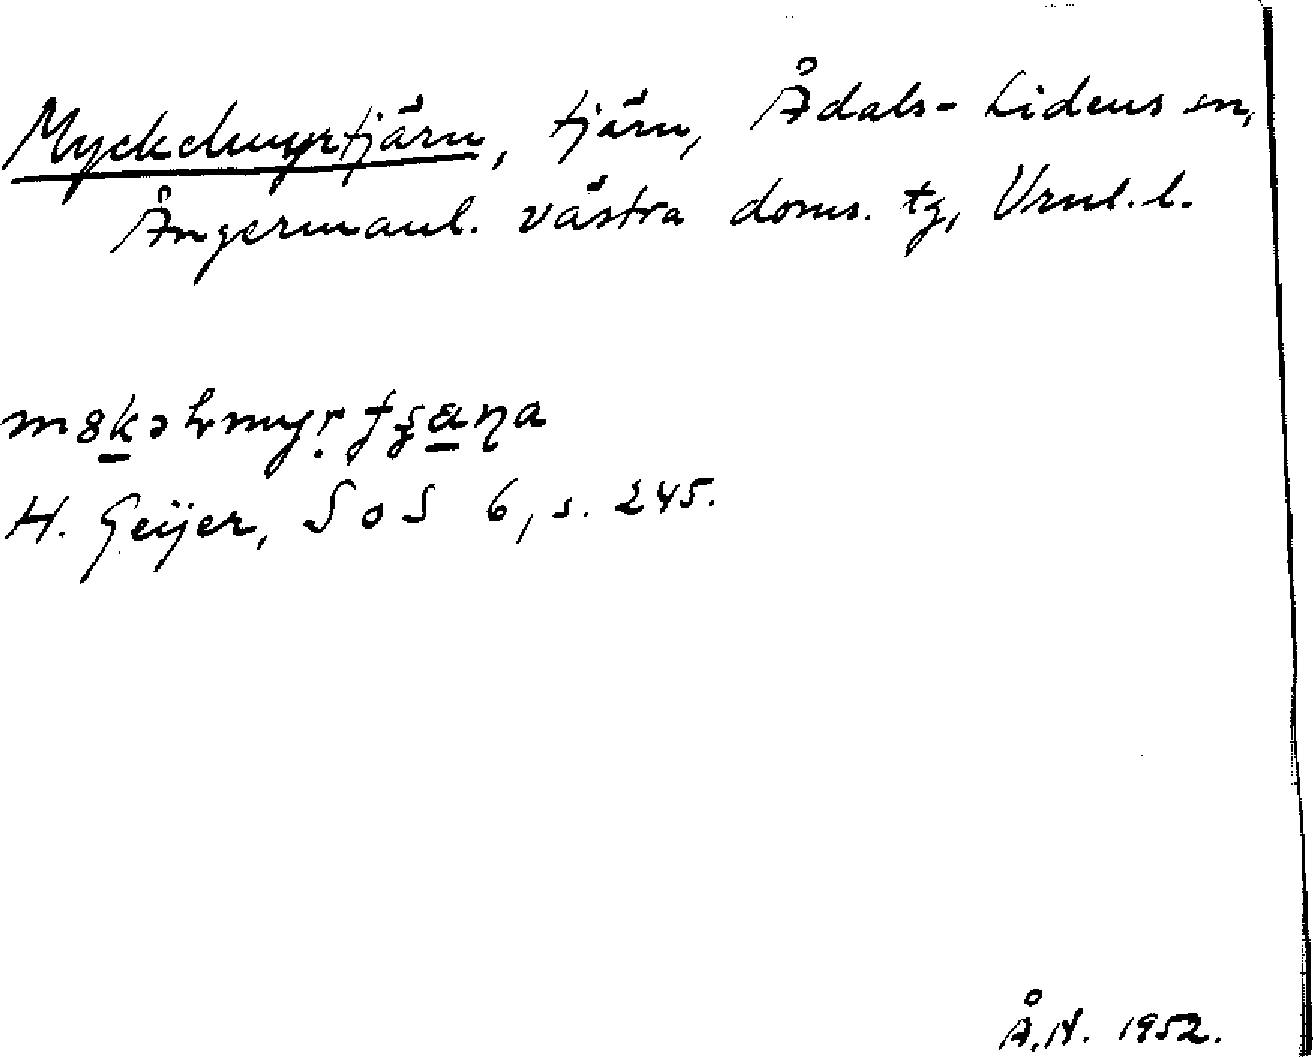 Myckelmyrtjärn, tjärn, Ådals-Lidens sn,
Ångermanl. västra doms. tg, Vrnl. l.
H. Geijer, SoS 6, s. 245.
Å.N. 1952.